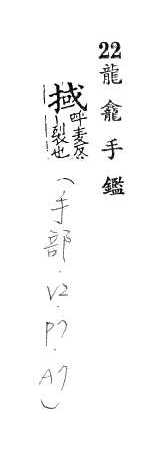 22龍龕手鑑
掝呼麦反
裂也
(手部.V2.P7.A7)